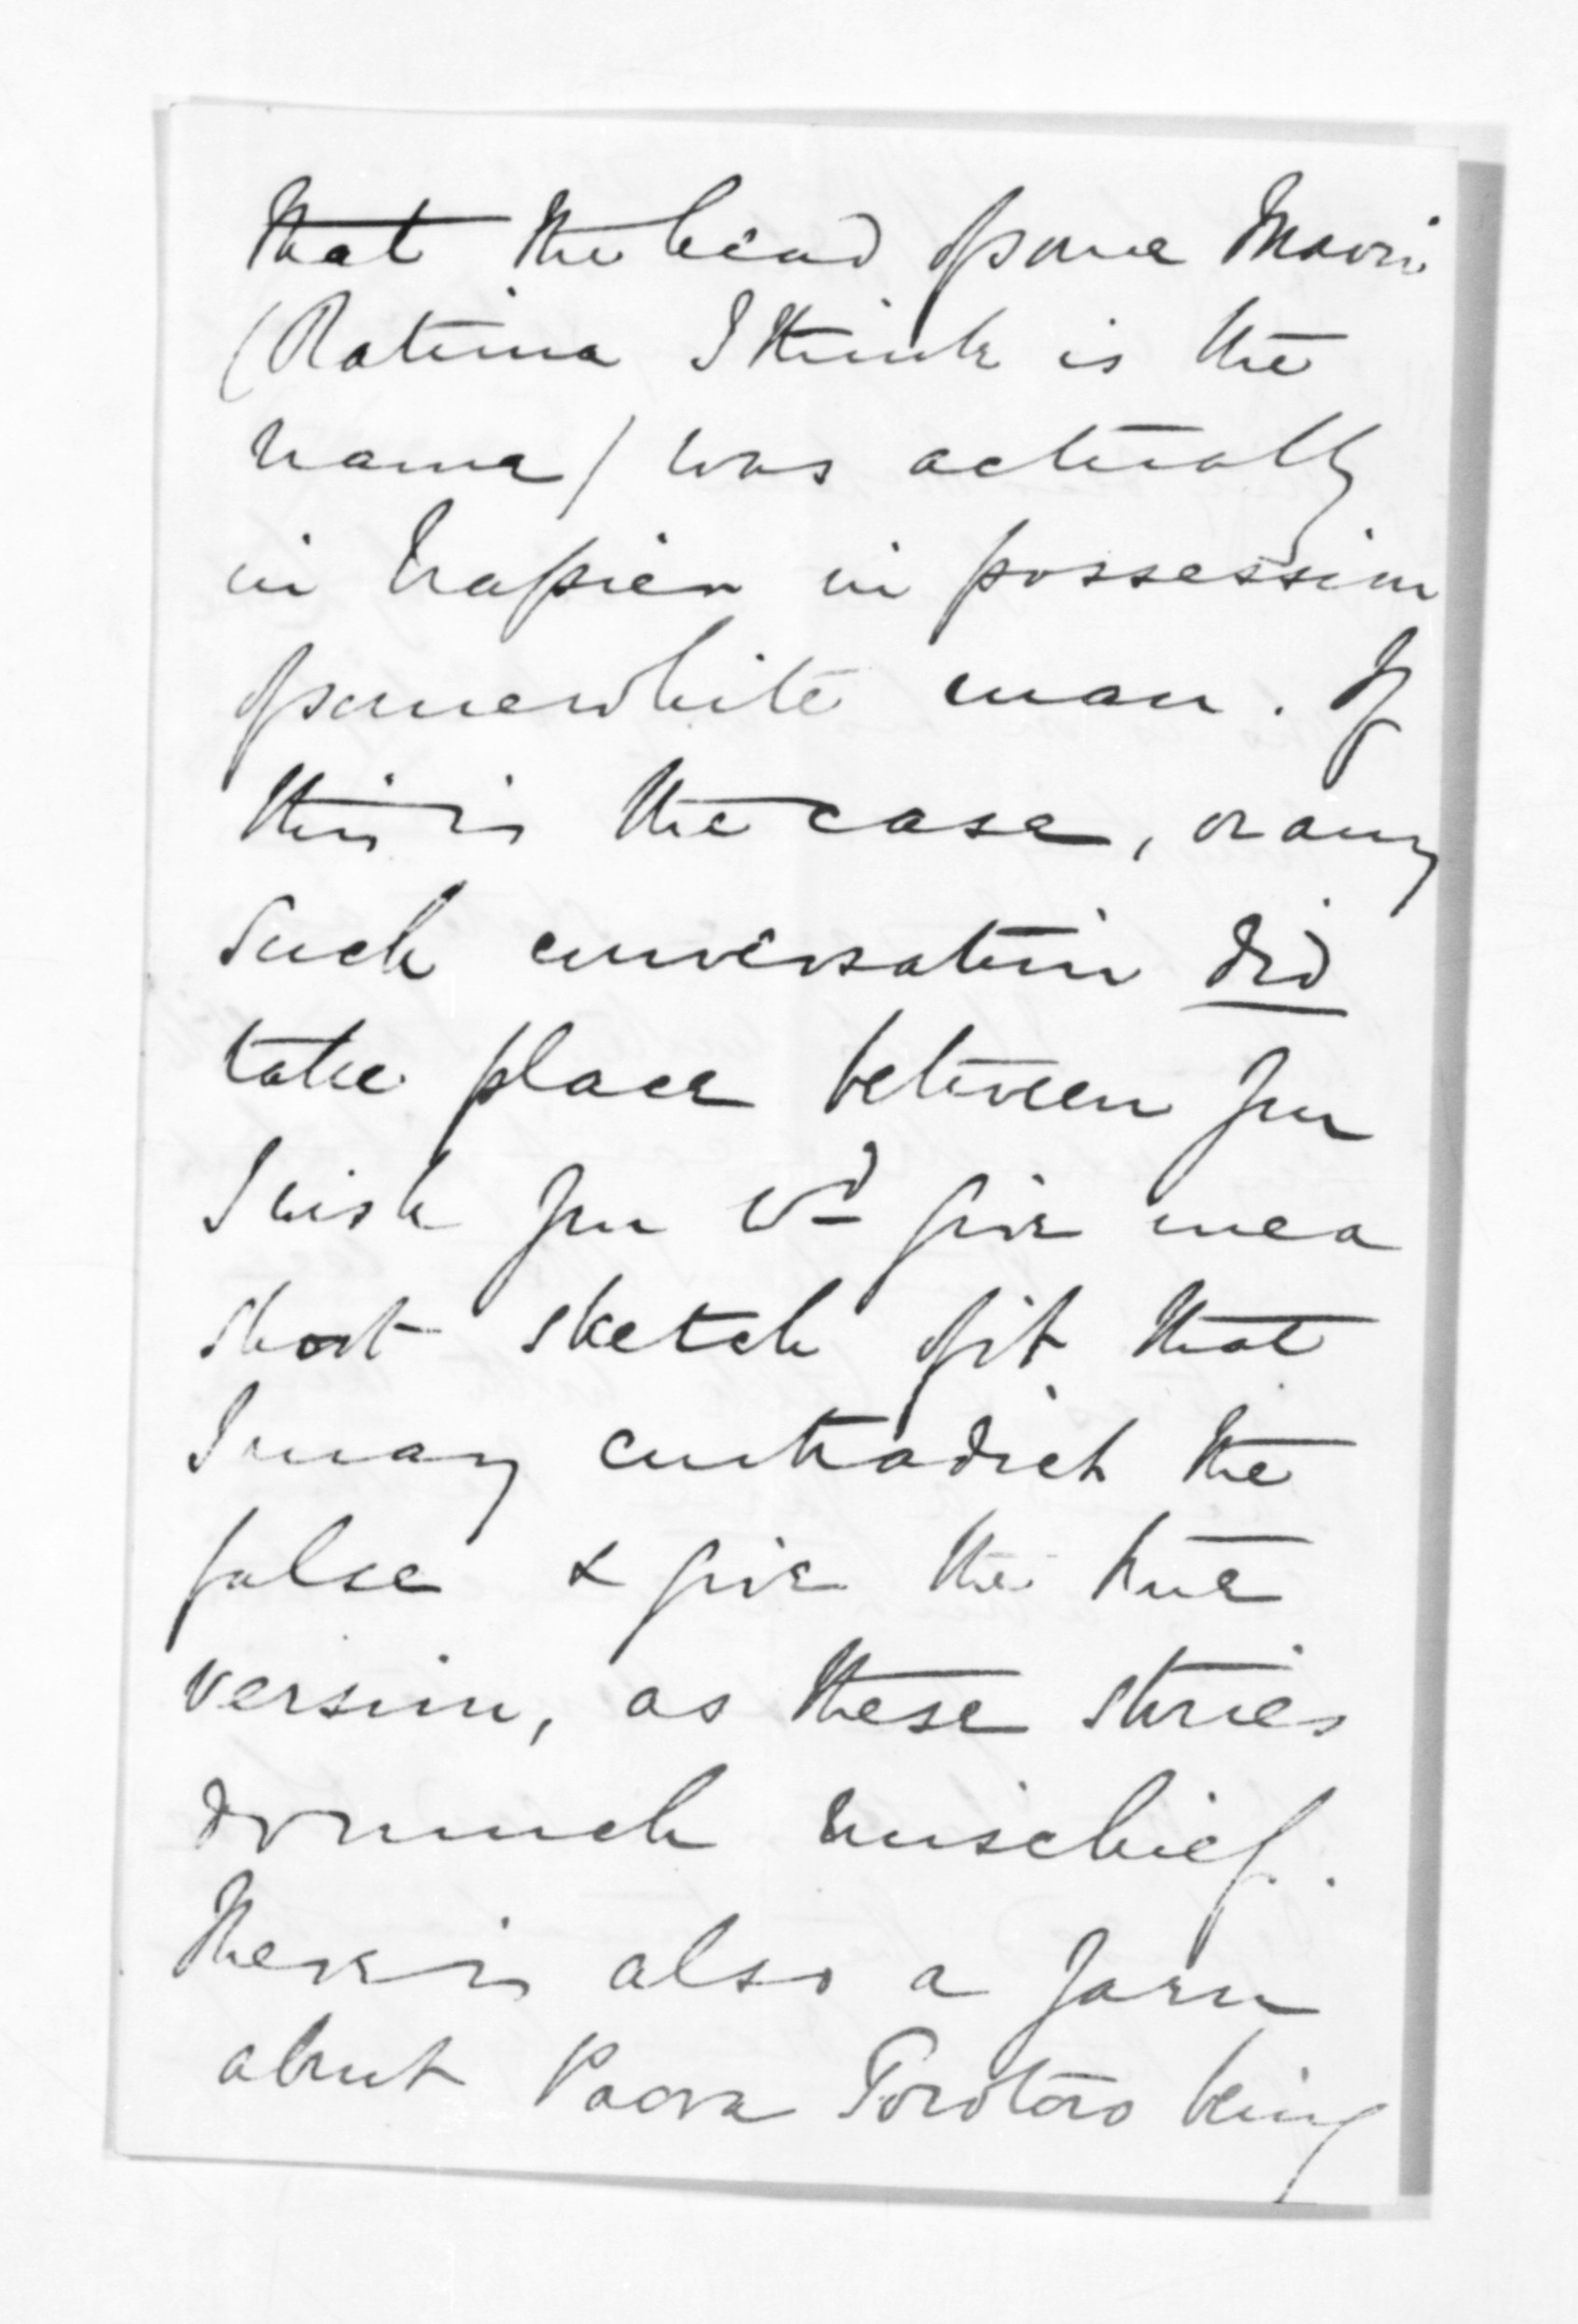 that the head of some Maori
(Ratima I think is the
name) was actually
in Napier in possession
of some white man. If
this is the case, or any
such conversation did
take place between you
I wish you wd give me a
short sketch of it that
I may contradict the
false & give the true
version, as these stories
do much mischief.
There is also a yarn
about Paora Torotoro being